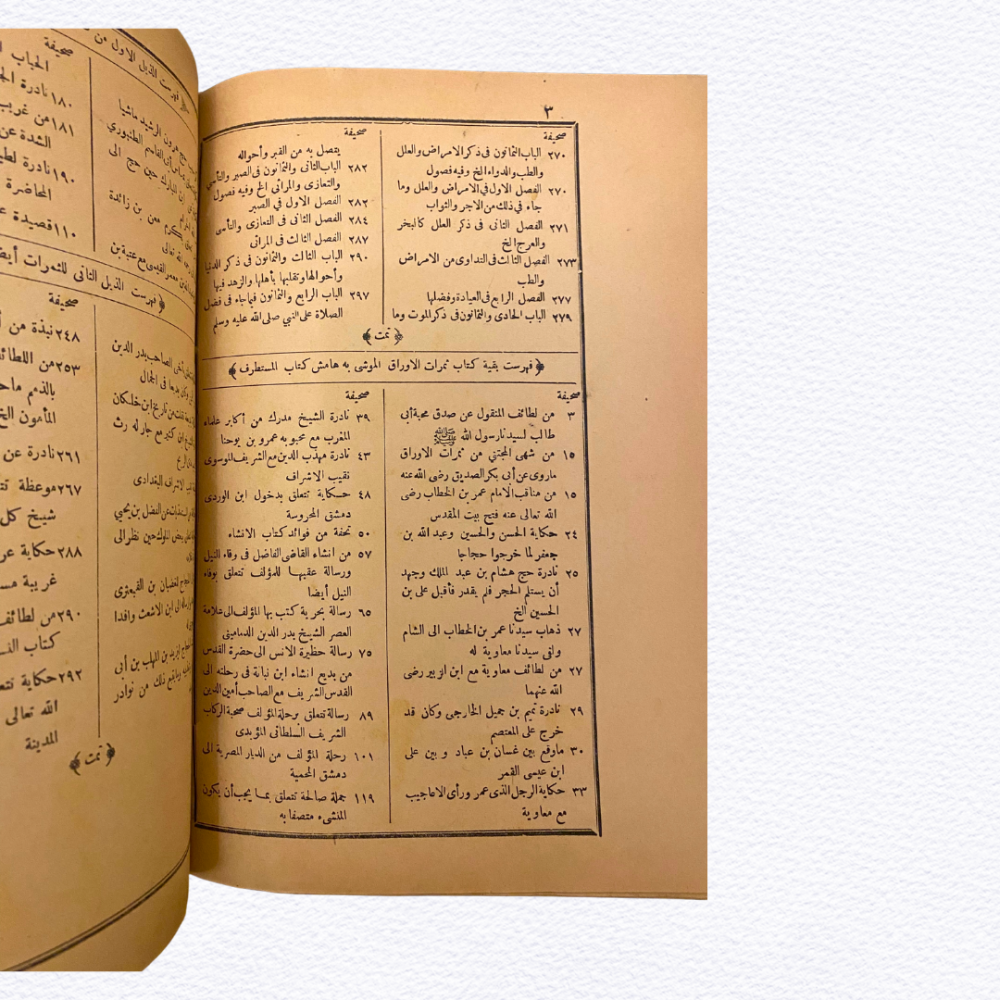 ٣
صحيفة
٢٧٠ الباب الثمانون فى ذكر الامراض والعلل
والطب والدواء الخ وفيه فصول
٢٧٠ الفصل الاول فى الامراض والعلل وما
جاء فى ذلك من الاجر والثواب
٢٧١ الفصل الثانى فى ذكر العلل كالبخر
والعرج الخ
٢٧٣ الفصل الثالث فى التداوى من الامراض
والطب
٢٧٧ الفصل الرابع فى العيادة وفضلها
٢٧٩ الباب الحادى والثمانون فى ذكر الموت وما
صحيفة
يتصل به من القبر وأحواله
٢٨٢ الباب الثانى والثمانون فى الصبر والتأسى
والتعازى والمراثى الخ وفيه فصول
٢٨٢ الفصل الاول فى الصبر
٢٨٤ الفصل الثانى فى التعازى والتأسى
٢٨٧ الفصل الثالث فى المراثى
٢٩٠ الباب الثالث والثمانون فى ذكر الدنيا
وأحوالها وتقلبها بأهلها والزهد فيها
٢٩٧ الباب الرابع والثمانون فيما جاء فى فضل
الصلاة على النبي صلى الله عليه وسلم
﴿ تمت ﴾
﴿ فهرست بقية كتاب ثمرات الاوراق الموشى به هامش كتاب المستطرف ﴾
صحيفة
٣ من لطائف المنقول عن صدق محبة أبى
طالب لسيدنا رسول الله ﷺ
١٥ من شهى المجتنى من ثمرات الاوراق
ماروى عن أبى بكر الصديق رضى الله عنه
١٥ من مناقب الامام عمر بن الخطاب رضى
الله تعالى عنه فتح بيت المقدس
٢٤ حكاية الحسن والحسين وعبد الله بن
جعفر لما خرجوا حجاجا
٢٥ نادرة حج هشام بن عبد الملك وجهد
أن يستلم الحجر فلم يقدر فأقبل على بن
الحسين الخ
٢٧ ذهاب سيدنا عمر بن الخطاب الى الشام
وافى سيدنا معاوية له
٢٧ من لطائف معاوية مع ابن الزبير رضى
الله عنهما
٢٩ نادرة تميم بن جميل الخارجى وكان قد
خرج على المعتصم
٣٠ ماوقع بين غسان بن عباد و بين على
ابن عيسى القمر
٣٣ حكاية الرجل الذى عمر ورأى الاعاجيب
مع معاوية
صحيفة
٣٩ نادرة الشيخ مدرك من أكابر علماء
المغرب مع محبوبه عمرو بن يوحنا
٤٣ نادرة مهذب الدين مع الشريف الموسوى
نقيب الاشراف
٤٨ حكاية تتعلق بدخول ابن الوردى
دمشق المحروسة
٥٠ تحفة من فوائد كتاب الانشاء
٥٧ من انشاء القاضى الفاضل فى وفاء النيل
ورسالة عقبها للمؤلف تتعلق بوفاء
النيل أيضا
٦٥ رسالة بحرية كتب بها المؤلف الى علامة
العصر الشيخ بدر الدين الدمامينى
٧٥ رسالة حظيرة الانس الى حضرة القدس
من بديع انشاء ابن نباتة فى رحلته الى
القدس الشريف مع الصاحب أمين الدين
٨٩ رسالة تتعلق برحلة المؤلف صحبة الركاب
الشريف السلطانى المؤيدى
١٠١ رحلة المؤلف من الديار المصرية الى
دمشق المحمية
١١٩ جملة صالحة تتعلق بما يجب أن يكون
المنشىء متصفا به
صحيفة
١٨٠ نادرة
١٨١ من
الشدة
١٩٠ نادرة
المحاضرة
١١٠ قصيدة
﴿ فهرست الذيل الثانى للثمرات
صحيفة
٢٤٨ نبذة من
٢٥٣ من
بالذم
المأمون الخ
٢٦١ نادرة عن
٢٦٧ موعظة
شيخ كل
٢٨٨ حكاية
غريبة
٢٩٠ من
كتاب
٢٩٢ حكاية
الله تعالى
المدينة
﴿ تمت ﴾